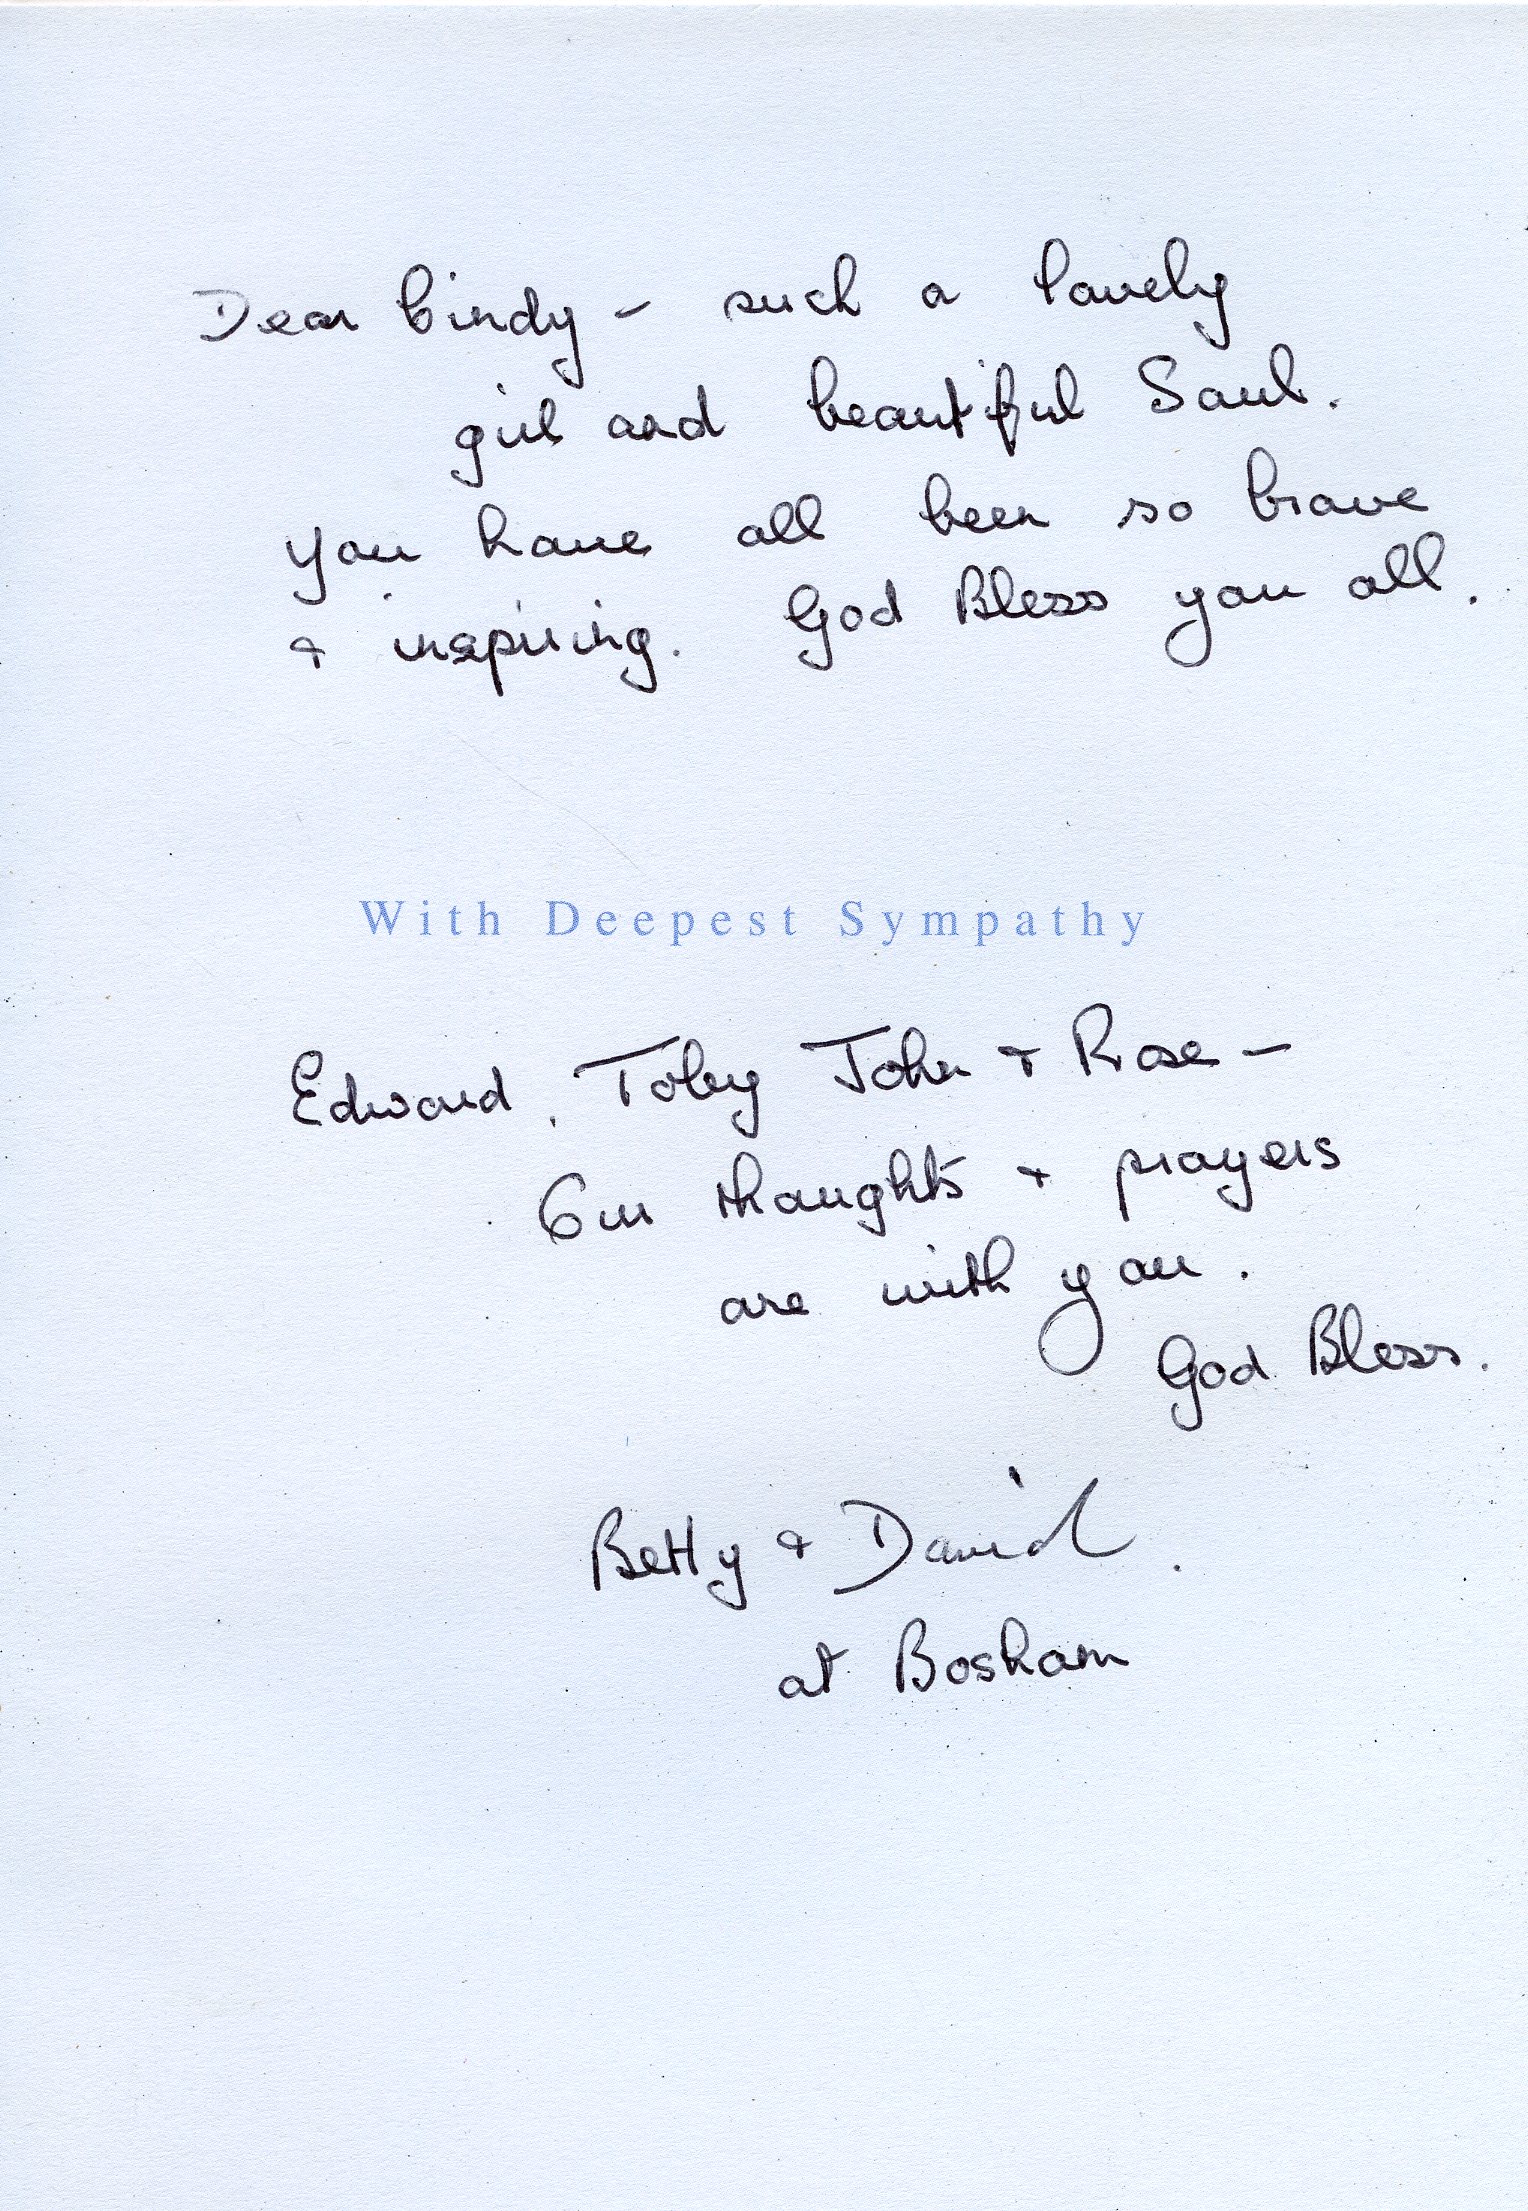 Dear Cindy - such a lovely
girl and beautiful Soul.
You have all been so brave
& inspiring. God Bless you all.
With Deepest Sympathy
Edward, Toby John & Rose -
Our thoughts & prayers
are with you.
God Bless.
Betty & David.
at Bosham